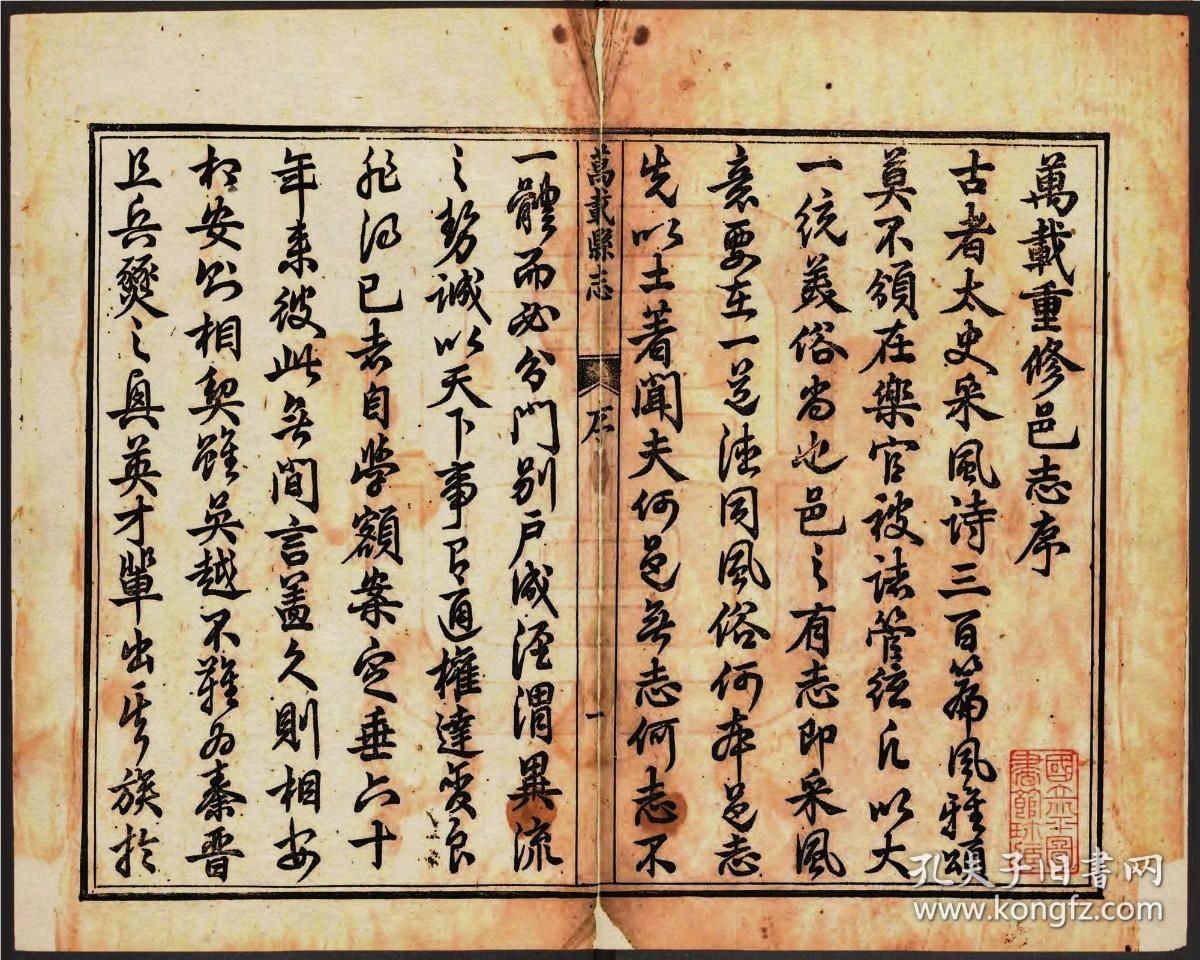 萬載重修邑志序
古者太史采風詩三百篇風雅頌
莫不領在樂官被諸管弦凡以大
一統義俗尚也邑之有志即采風
意要在一道德同風俗何本邑志
先以土著聞夫何邑無志何志不
萬載縣志
序
一
一體而必分門別戶減涇渭異流
之勢誠以天下事有通權達變良
非得已者自學額案定垂六十
年來彼此無間言蓋久則相安
相安則相契雖吳越不難為秦晉
且兵燹之與英才輩出其族於
國立北平圖書館珍藏
孔夫子旧书网
www.kongfz.com